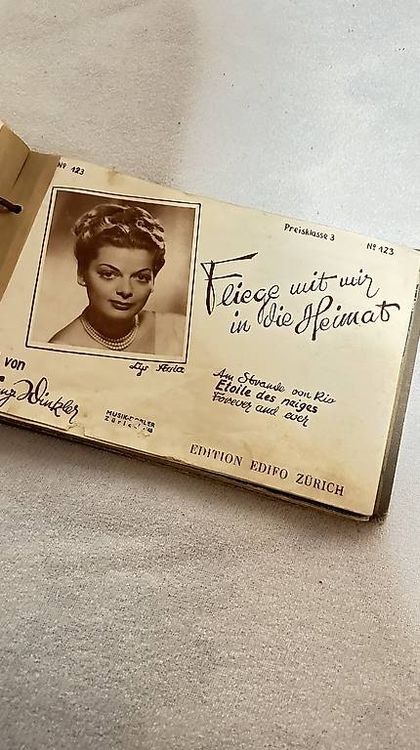 Nº 123
Preisklasse 3
Nº 123
Fliege mit mir
in die Heimat
Lys Assia
von
Winkler
Am Strande von Rio
Etoile des neiges
Forever and ever
EDITION EDIFO ZÜRICH